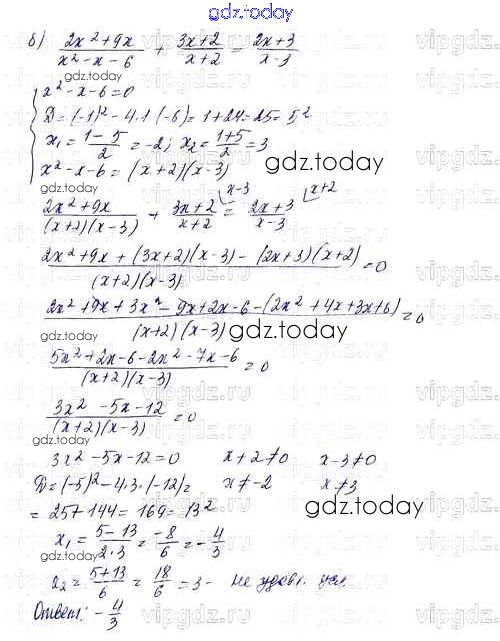 gdz.today
б) (2x² + 9x)/(x² - x - 6) + (3x+2)/(x+2) = (2x+3)/(x-3)
gdz.today
x² - x - 6 = 0
D = (-1)² - 4·1·(-6) = 1 + 24 = 25 = 5²
x₁ = (1-5)/2 = -2; x₂ = (1+5)/2 = 3
x² - x - 6 = (x+2)(x-3)
gdz.today
(2x² + 9x)/((x+2)(x-3)) + (3x+2)/(x+2) ⌊x-3 = (2x+3)/(x-3) ⌊x+2
(2x² + 9x + (3x+2)(x-3) - (2x+3)(x+2))/((x+2)(x-3)) = 0
gdz.today
(2x² + 9x + 3x² - 9x + 2x - 6 - (2x² + 4x + 3x + 6))/((x+2)(x-3)) = 0
gdz.today
(5x² + 2x - 6 - 2x² - 7x - 6)/((x+2)(x-3)) = 0
(3x² - 5x - 12)/((x+2)(x-3)) = 0
gdz.today
3x² - 5x - 12 = 0 x + 2 ≠ 0 x - 3 ≠ 0
D = (-5)² - 4·3·(-12) = x ≠ -2 x ≠ 3
= 25 + 144 = 169 = 13²
gdz.today
x₁ = (5-13)/(2·3) = -8/6 = -4/3
x₂ = (5+13)/6 = 18/6 = 3 - не удовл. усл.
gdz.today
Ответ: -4/3
gdz.today
vipgdz.ru